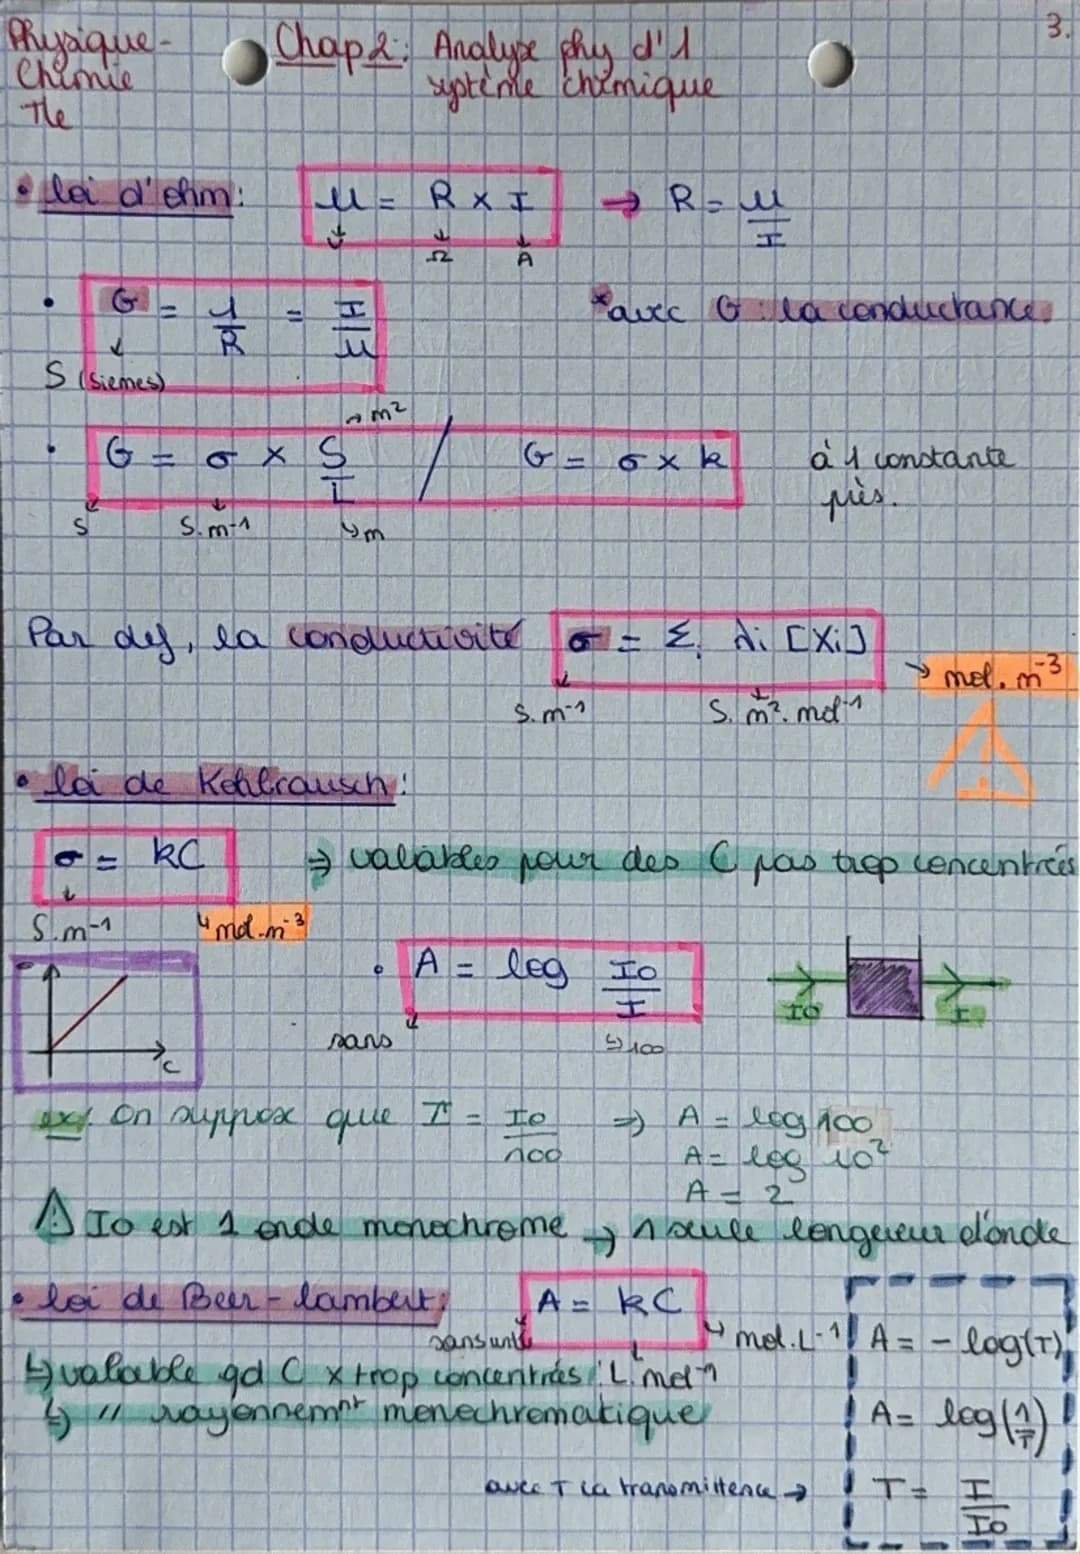 Physique-
Chimie
Tle
Chap 2: Analyse phy d'1
système chimique
3.
• loi d'ohm: U = R x I → R = U/I
Ω A
• G = 1/R = I/U *avec G : la conductance.
S (Siemes)
→ m²
• G = σ x S/L / G = σ x k à 1 constante
près.
S S.m-1 ↳m
Par def, la conductivité σ = Σi λi [Xi]
→ mol.m-3
S.m-1 S.m².mol-1
• loi de Kohlrausch:
σ = kC ⇒ valables pour des C pas trop concentrés
S.m-1 ↳ mol.m-3
σ
C
• A = log I0/I
I0 I
sans ↳ 100
ex/ On suppose que I = I0/100 ⇒ A = log 100
A = log 10²
A = 2
⚠ I0 est 1 onde monochrome → 1 seule longueur d'onde
• loi de Beer-lambert: A = kC
sans unité ↳ mol.L-1
L.mol-1
↳ valable qd C x trop concentrés
↳ " rayonnemnt monochromatique
A = - log(T)
A = log(1/T)
avec T la transmittence → T = I/I0